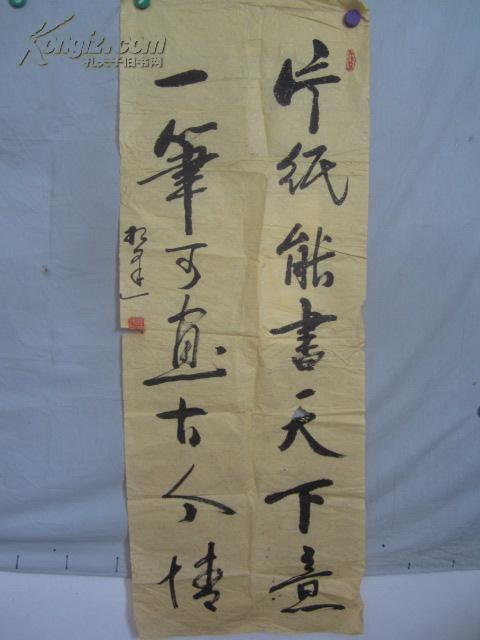 片纸能書天下意
一筆可畫古人情
Kongfz.com
孔夫子旧书网